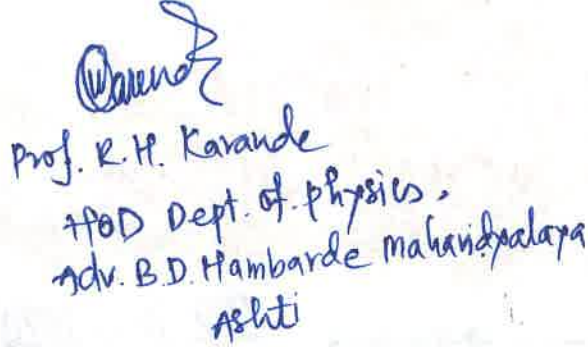 Prof. R.H. Karande
HOD Dept. of. physics,
Adv. B.D. Hambarde mahavidyalaya
Ashti